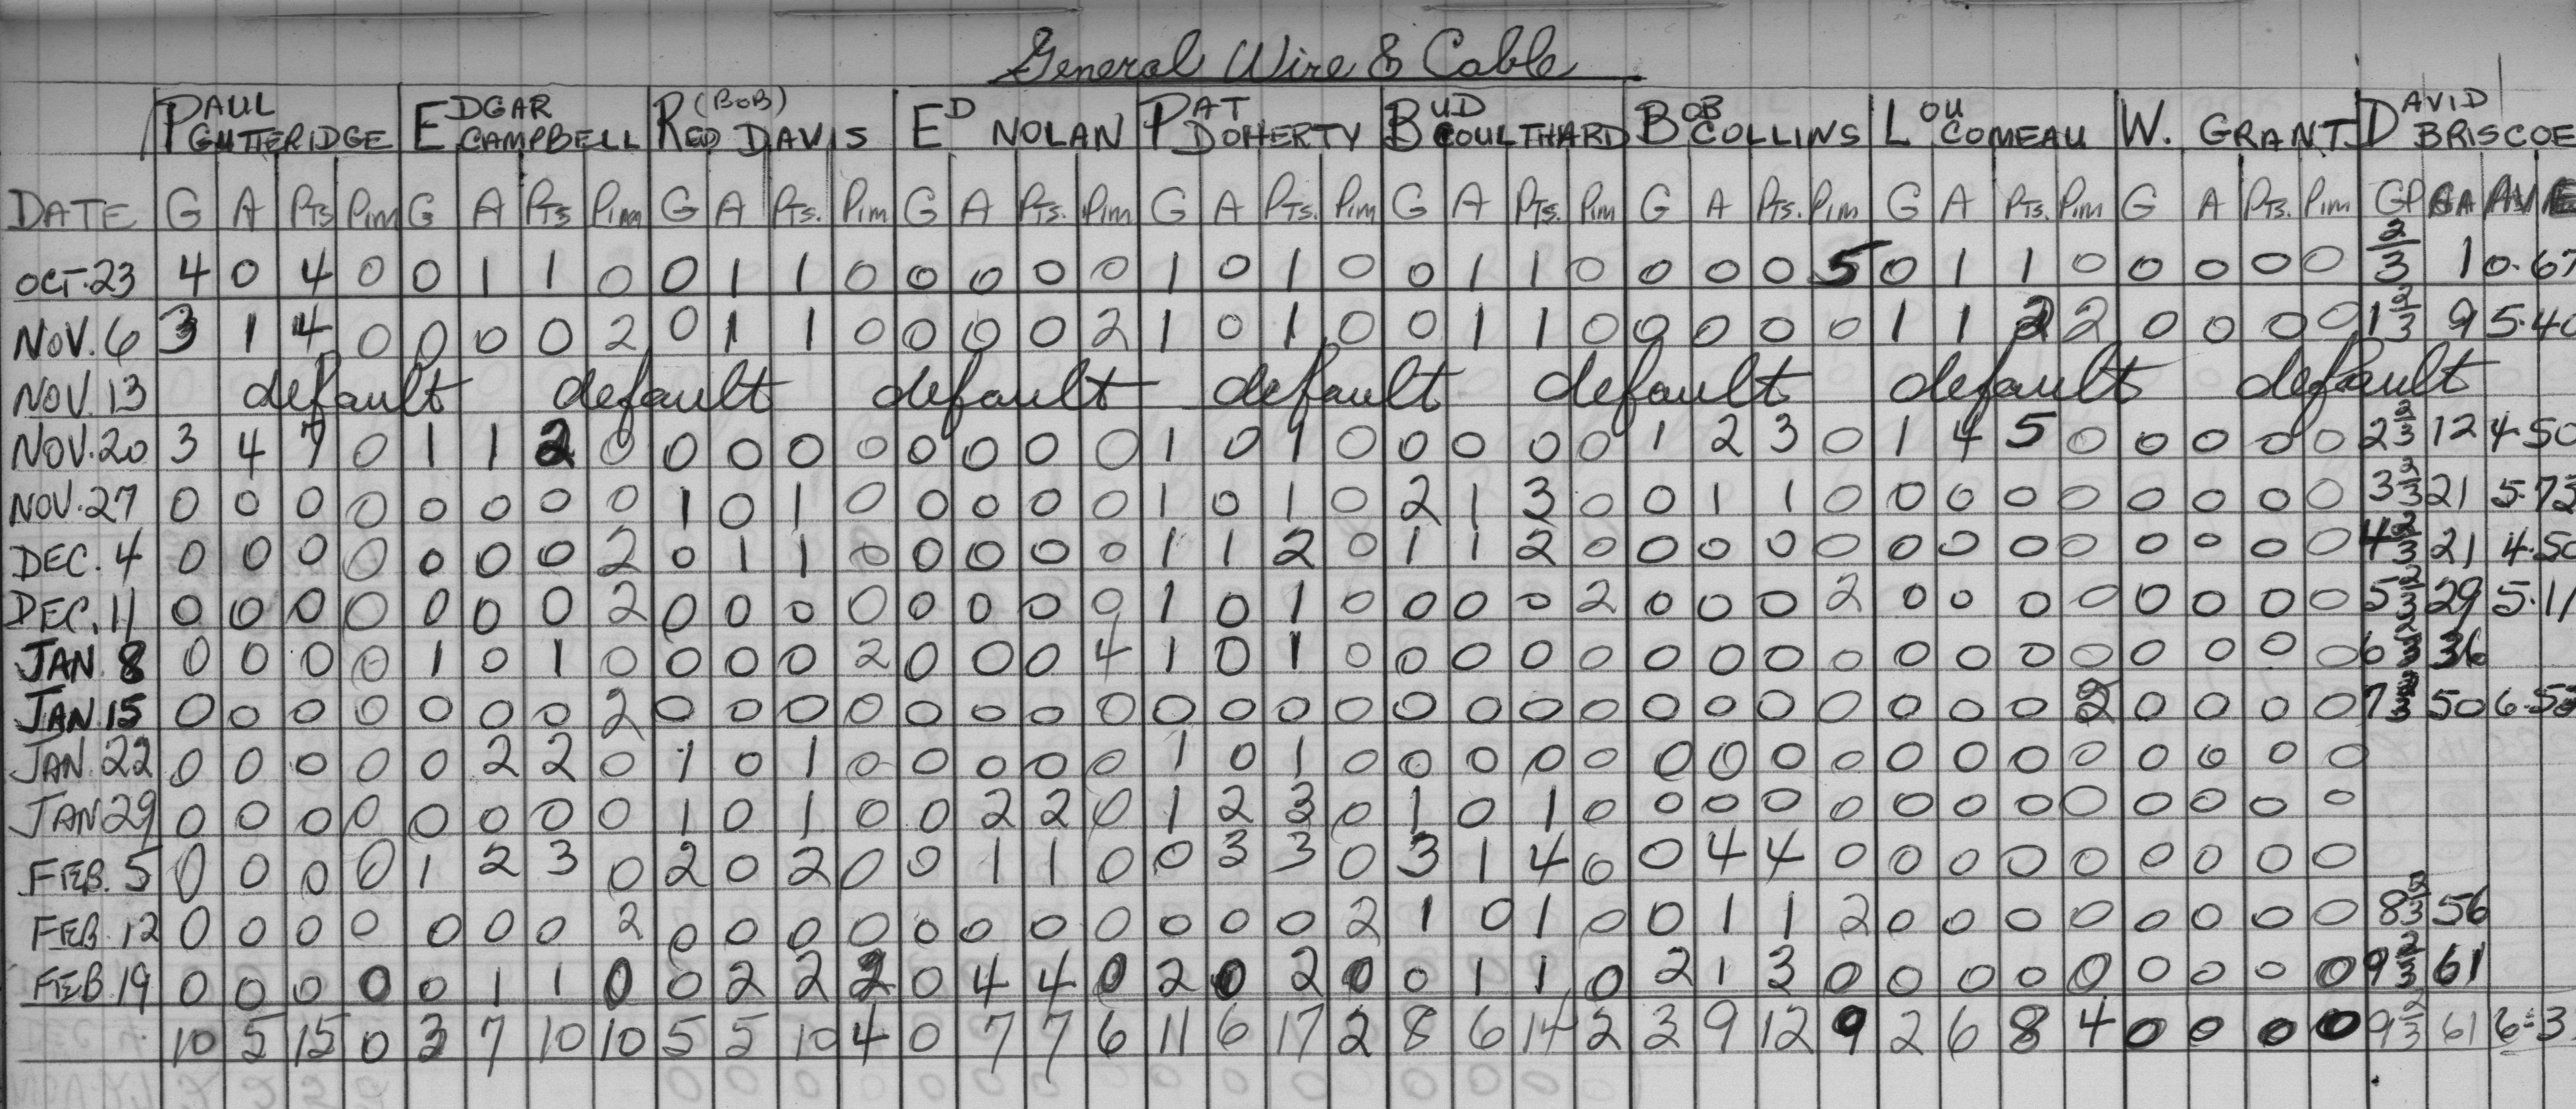 General Wire & Cable
PAUL GUTTERIDGE EDGAR CAMPBELL RED (BOB) DAVIS ED NOLAN PAT DOHERTY BUD COULTHARD BOB COLLINS LOU COMEAU W. GRANT DAVID BRISCOE
DATE G A PTS PIM G A PTS PIM G A PTS. PIM G A PTS. PIM G A PTS. PIM G A PTS. PIM G A PTS. PIM G A PTS. PIM G A PTS. PIM GP GA AVE
OCT.23 4 0 4 0 0 1 1 0 0 1 1 0 0 0 0 0 1 0 1 0 0 1 1 0 0 0 0 5 0 1 1 0 0 0 0 0 2/3 1 0.67
NOV.6 3 1 4 0 0 0 0 2 0 1 1 0 0 0 0 2 1 0 1 0 0 1 1 0 0 0 0 0 1 1 2 2 0 0 0 0 1 2/3 9 5.40
NOV.13 default default default default default default default
NOV.20 3 4 7 0 1 1 2 0 0 0 0 0 0 0 0 0 1 0 1 0 0 0 0 0 1 2 3 0 1 4 5 0 0 0 0 0 2 2/3 12 4.50
NOV.27 0 0 0 0 0 0 0 0 1 0 1 0 0 0 0 0 1 0 1 0 2 1 3 0 0 1 1 0 0 0 0 0 0 0 0 0 3 2/3 21 5.73
DEC.4 0 0 0 0 0 0 0 2 0 1 1 0 0 0 0 0 1 1 2 0 1 1 2 0 0 0 0 0 0 0 0 0 0 0 0 0 4 2/3 21 4.50
DEC.11 0 0 0 0 0 0 0 2 0 0 0 0 0 0 0 0 1 0 1 0 0 0 0 2 0 0 0 2 0 0 0 0 0 0 0 0 5 2/3 29 5.11
JAN.8 0 0 0 0 1 0 1 0 0 0 0 2 0 0 0 4 1 0 1 0 0 0 0 0 0 0 0 0 0 0 0 0 0 0 0 0 6 2/3 36
JAN.15 0 0 0 0 0 0 0 2 0 0 0 0 0 0 0 0 0 0 0 0 0 0 0 0 0 0 0 0 0 0 0 2 0 0 0 0 7 2/3 50 6.52
JAN.22 0 0 0 0 0 2 2 0 1 0 1 0 0 0 0 0 1 0 1 0 0 0 0 0 0 0 0 0 0 0 0 0 0 0 0 0
JAN 29 0 0 0 0 0 0 0 0 1 0 1 0 0 2 2 0 1 2 3 0 1 0 1 0 0 0 0 0 0 0 0 0 0 0 0 0
FEB.5 0 0 0 0 1 2 3 0 2 0 2 0 0 1 1 0 0 3 3 0 3 1 4 0 0 4 4 0 0 0 0 0 0 0 0 0
FEB.12 0 0 0 0 0 0 0 2 0 0 0 0 0 0 0 0 0 0 0 2 1 0 1 0 0 1 1 2 0 0 0 0 0 0 0 0 8 2/3 56
FEB.19 0 0 0 0 0 1 1 0 0 2 2 2 0 4 4 0 2 0 2 0 0 1 1 0 2 1 3 0 0 0 0 0 0 0 0 0 9 2/3 61
10 5 15 0 3 7 10 10 5 5 10 4 0 7 7 6 11 6 17 2 8 6 14 2 3 9 12 9 2 6 8 4 0 0 0 0 9 2/3 61 6.3